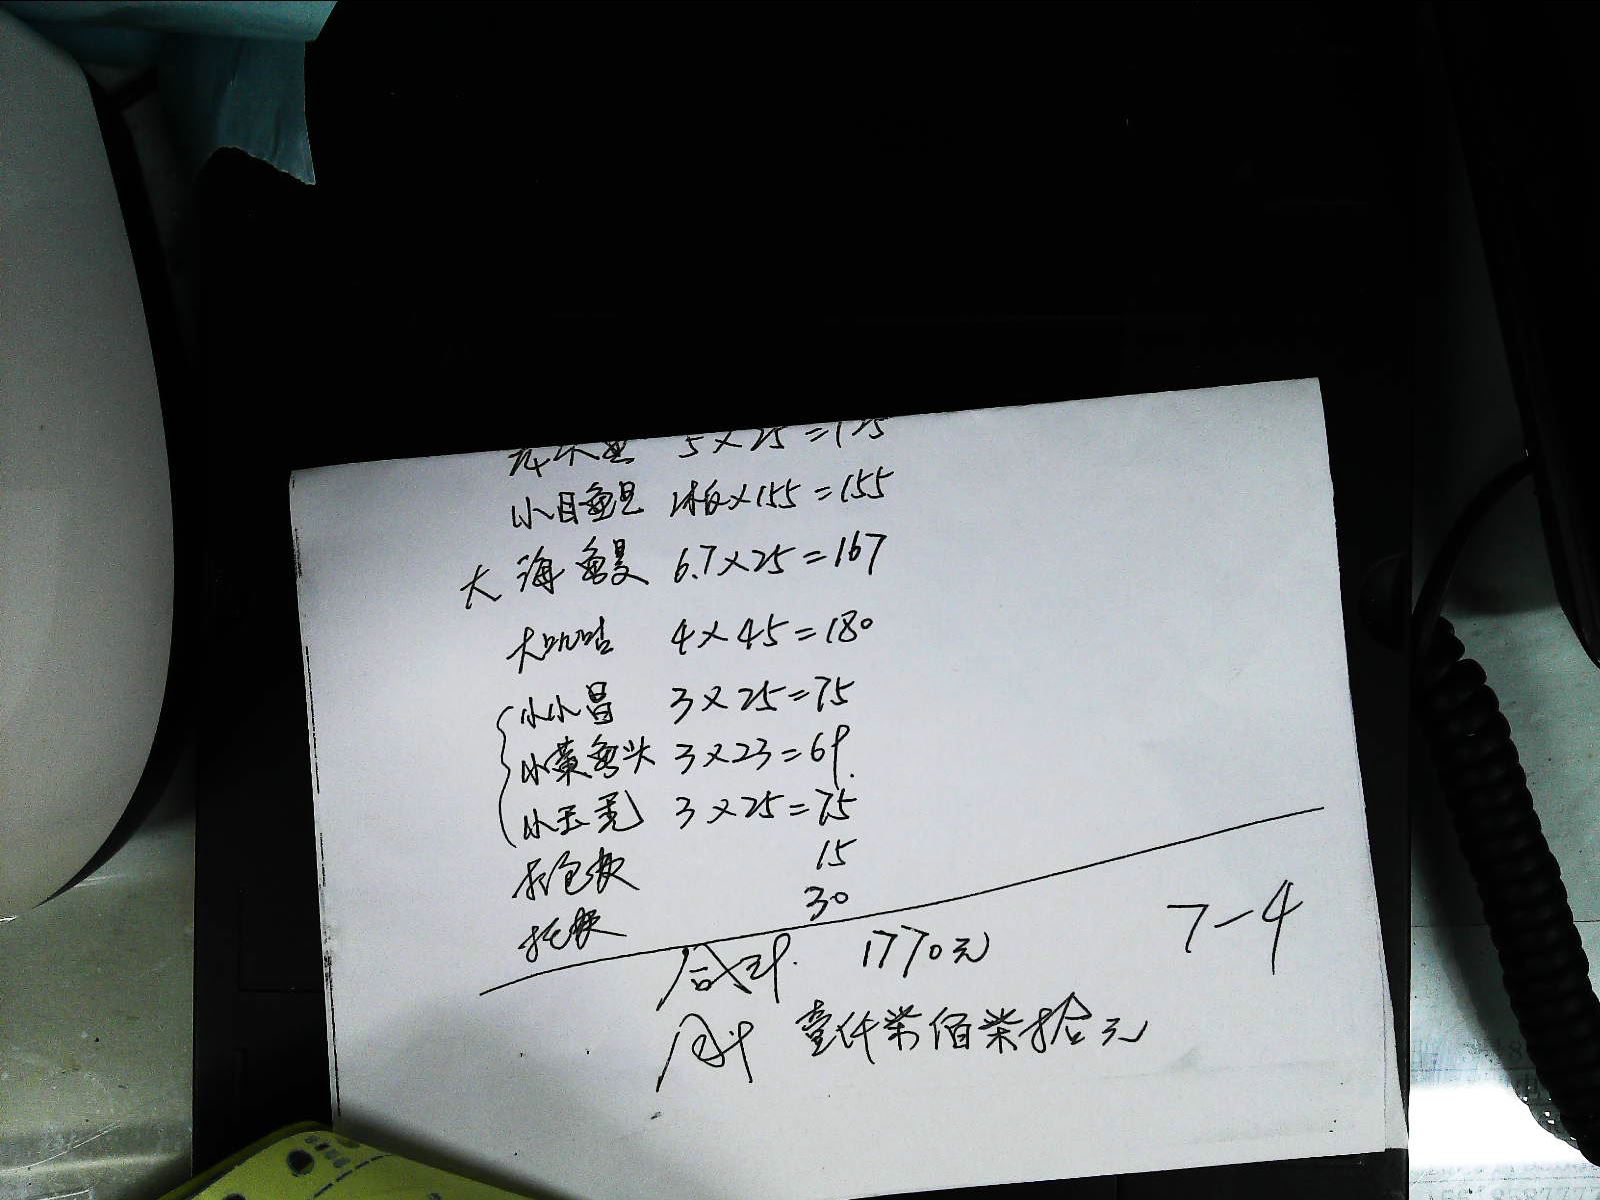 5×25=125
小目鱼 1板×155=155
大海鳗 6.7×25=167
大 4×45=180
小小昌 3×25=75
小黄鱼头 3×23=69.
小玉秃 3×25=75
打包款 15
托款 30
合计. 1770元
7-4
合计 壹仟柒佰柒拾元